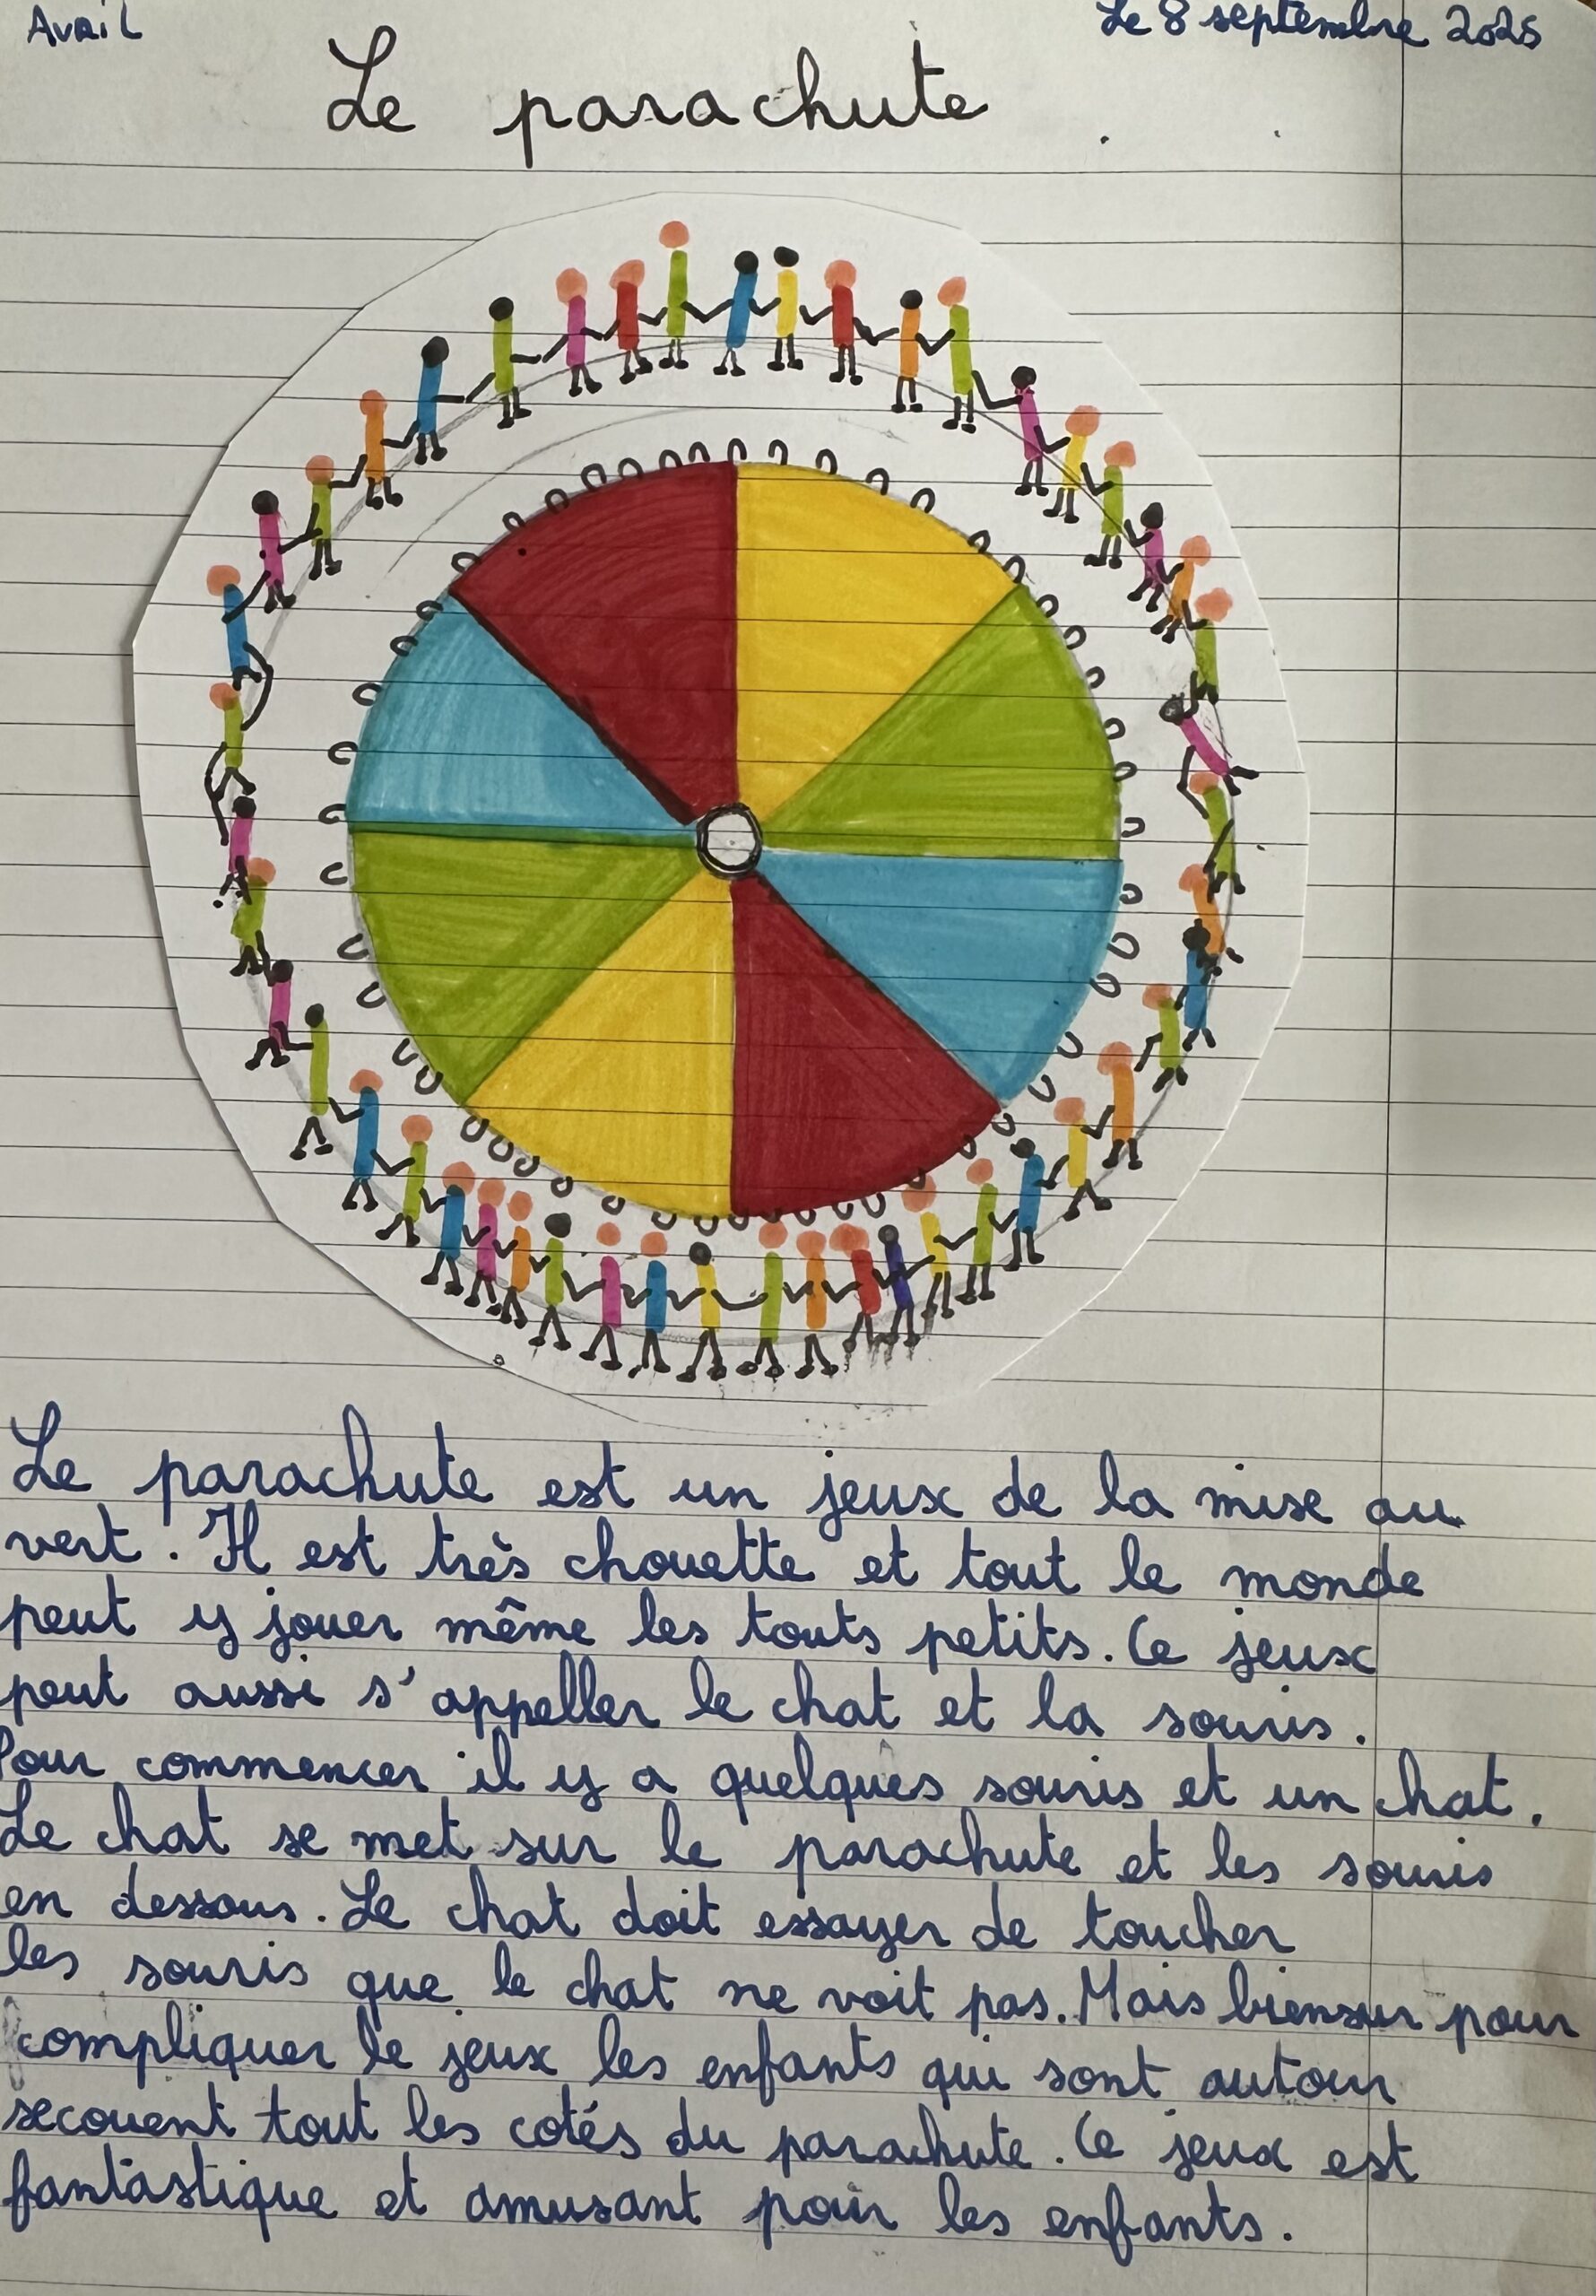 Avril
Le 8 septembre 2025
Le parachute
Le parachute est un jeux de la mise au
vert. Il est très chouette et tout le monde
peut y jouer même les touts petits. Ce jeux
peut aussi s'appeller le chat et la souris.
Pour commencer il y a quelques souris et un chat.
Le chat se met sur le parachute et les souris
en dessous. Le chat doit essayer de toucher
les souris que le chat ne voit pas. Mais biensur pour
compliquer le jeux les enfants qui sont autour
secouent tout les cotés du parachute. Ce jeux est
fantastique et amusant pour les enfants.